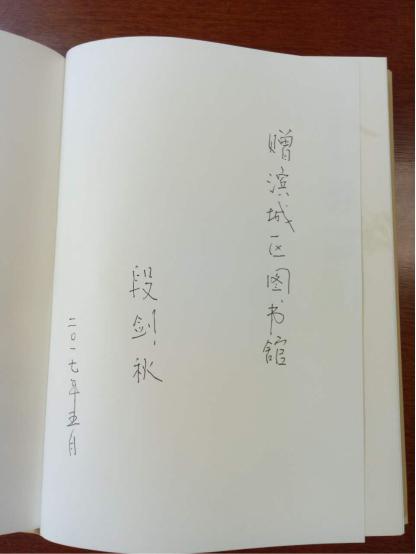 赠滨城区图书馆
段剑秋
二〇一七年五月